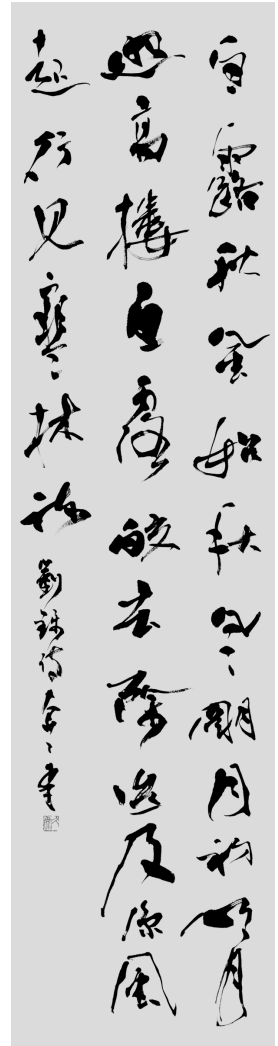 白露秋風始秋風明月初明月
照高樓白露皎玄除迨及涼風
起行見寒林疏 劉鑠詩